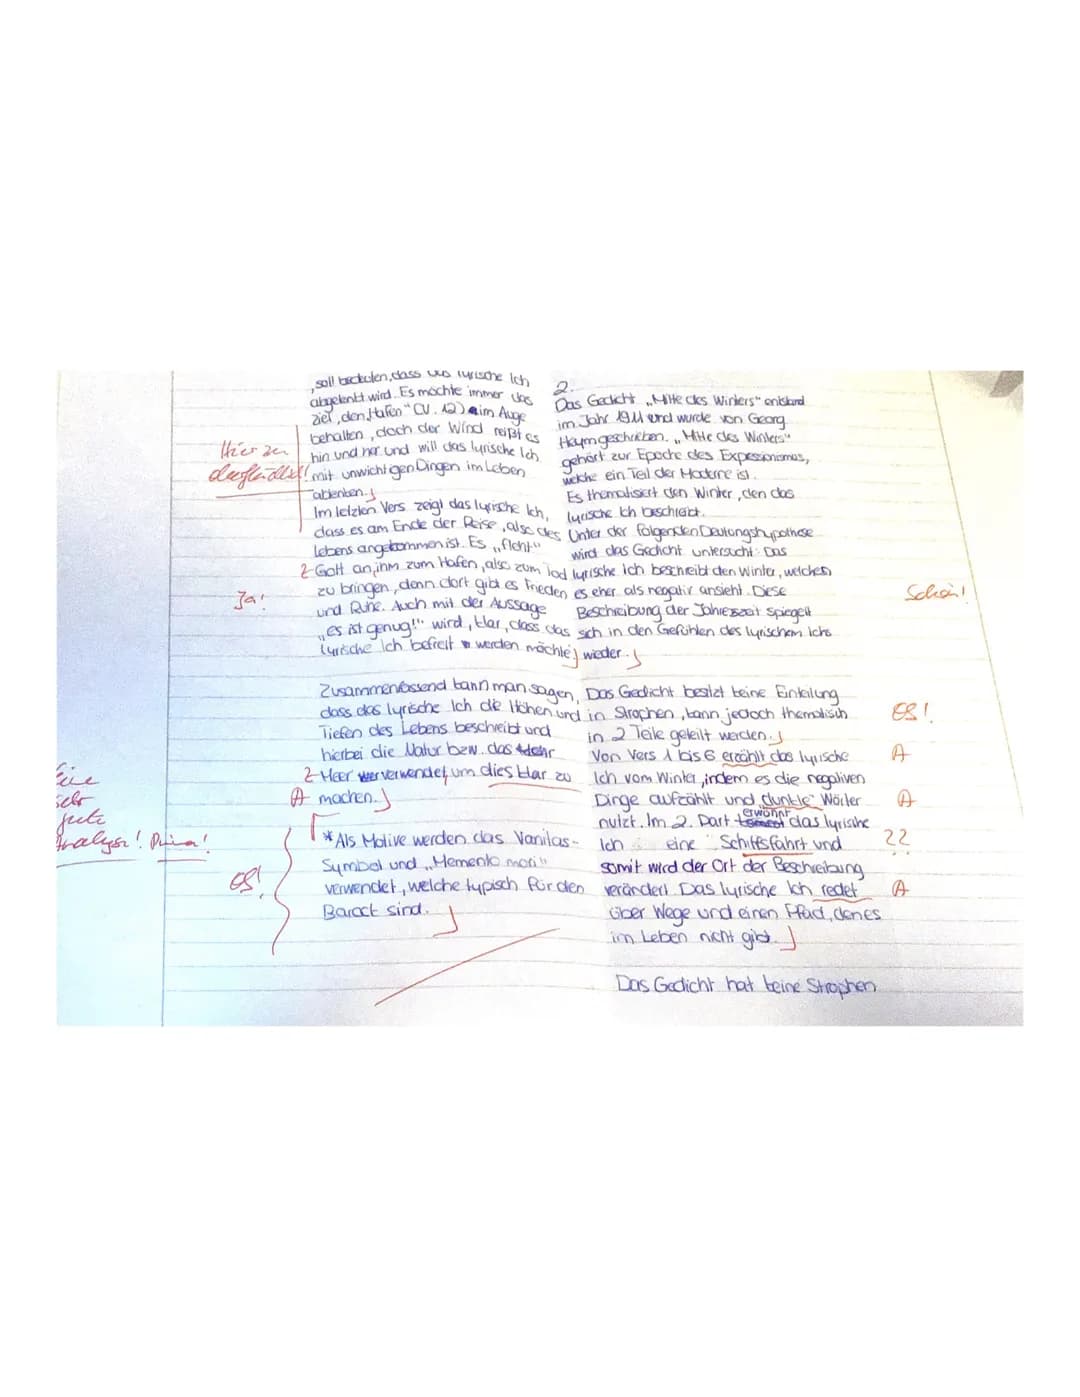 soll bedeuten, dass das lyrische Ich
abgelenkt wird. Es möchte immer das
Ziel „den Hafen“ (V. 12) im Auge
behalten, doch der Wind reißt es
hin und her und will das lyrische Ich
mit unwichtigen Dingen im Leben
ablenken.
Im letzten Vers zeigt das lyrische Ich,
dass es am Ende der Reise, also des
Lebens angekommen ist. Es „fleht“
Z Gott an, ihm zum Hafen, also zum Tod
zu bringen, denn dort gibt es Frieden
und Ruhe. Auch mit der Aussage
„es ist genug!“ wird, klar, dass das
lyrische Ich befreit werden möchte
Zusammenfassend kann man sagen,
dass das lyrische Ich die Höhen und
Tiefen des Lebens beschreibt und
hierbei die Natur bzw. das
Z Meer verwendet, um dies klar zu
A machen.
* Als Motive werden das Vanitas-
Symbol und „Memento mori“
verwendet, welche typisch für den
Barock sind.
Hier zu
Ja!
Eine
sehr
gute
Analyse! Prima!
ES!
2.
Das Gedicht „Mitte des Winters“ entstand
im Jahr 1911 und wurde von Georg
Heym geschrieben. „Mitte des Winters“
gehört zur Epoche des Expessionismus,
welche ein Teil der Moderne ist.
Es thematisiert den Winter, den das
lyrische Ich beschreibt.
Unter der folgenden Deutungshypothese
wird das Gedicht untersucht: Das
lyrische ich beschreibt den Winter, welchen
es eher als negativ ansieht. Diese
Beschreibung der Jahreszeit spiegelt
sich in den Gefühlen des lyrischem Ichs
wieder.
Das Gedicht besitzt keine Einteilung
in Strophen, kann jedoch thematisch
in 2 Teile geteilt werden.
Von Vers 1 bis 6 erzählt das lyrische
Ich vom Winter, indem es die negativen
Dinge aufzählt und „dunkle“ Wörter
nutzt. Im 2. Part erwähnt das lyrische
Ich eine Schiffsfahrt und
somit wird der Ort der Beschreibung
verändert. Das lyrische Ich redet
über Wege und einen Pfad, den es
im Leben nicht gibt.
Das Gedicht hat keine Strophen
Schön!
ES!
A
A
??
A